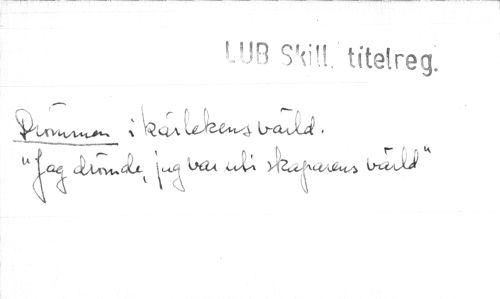 LUB Skill. titelreg.
Drömmen i kärlekens värld.
"Jag drömde, jag var uti skaparens värld"